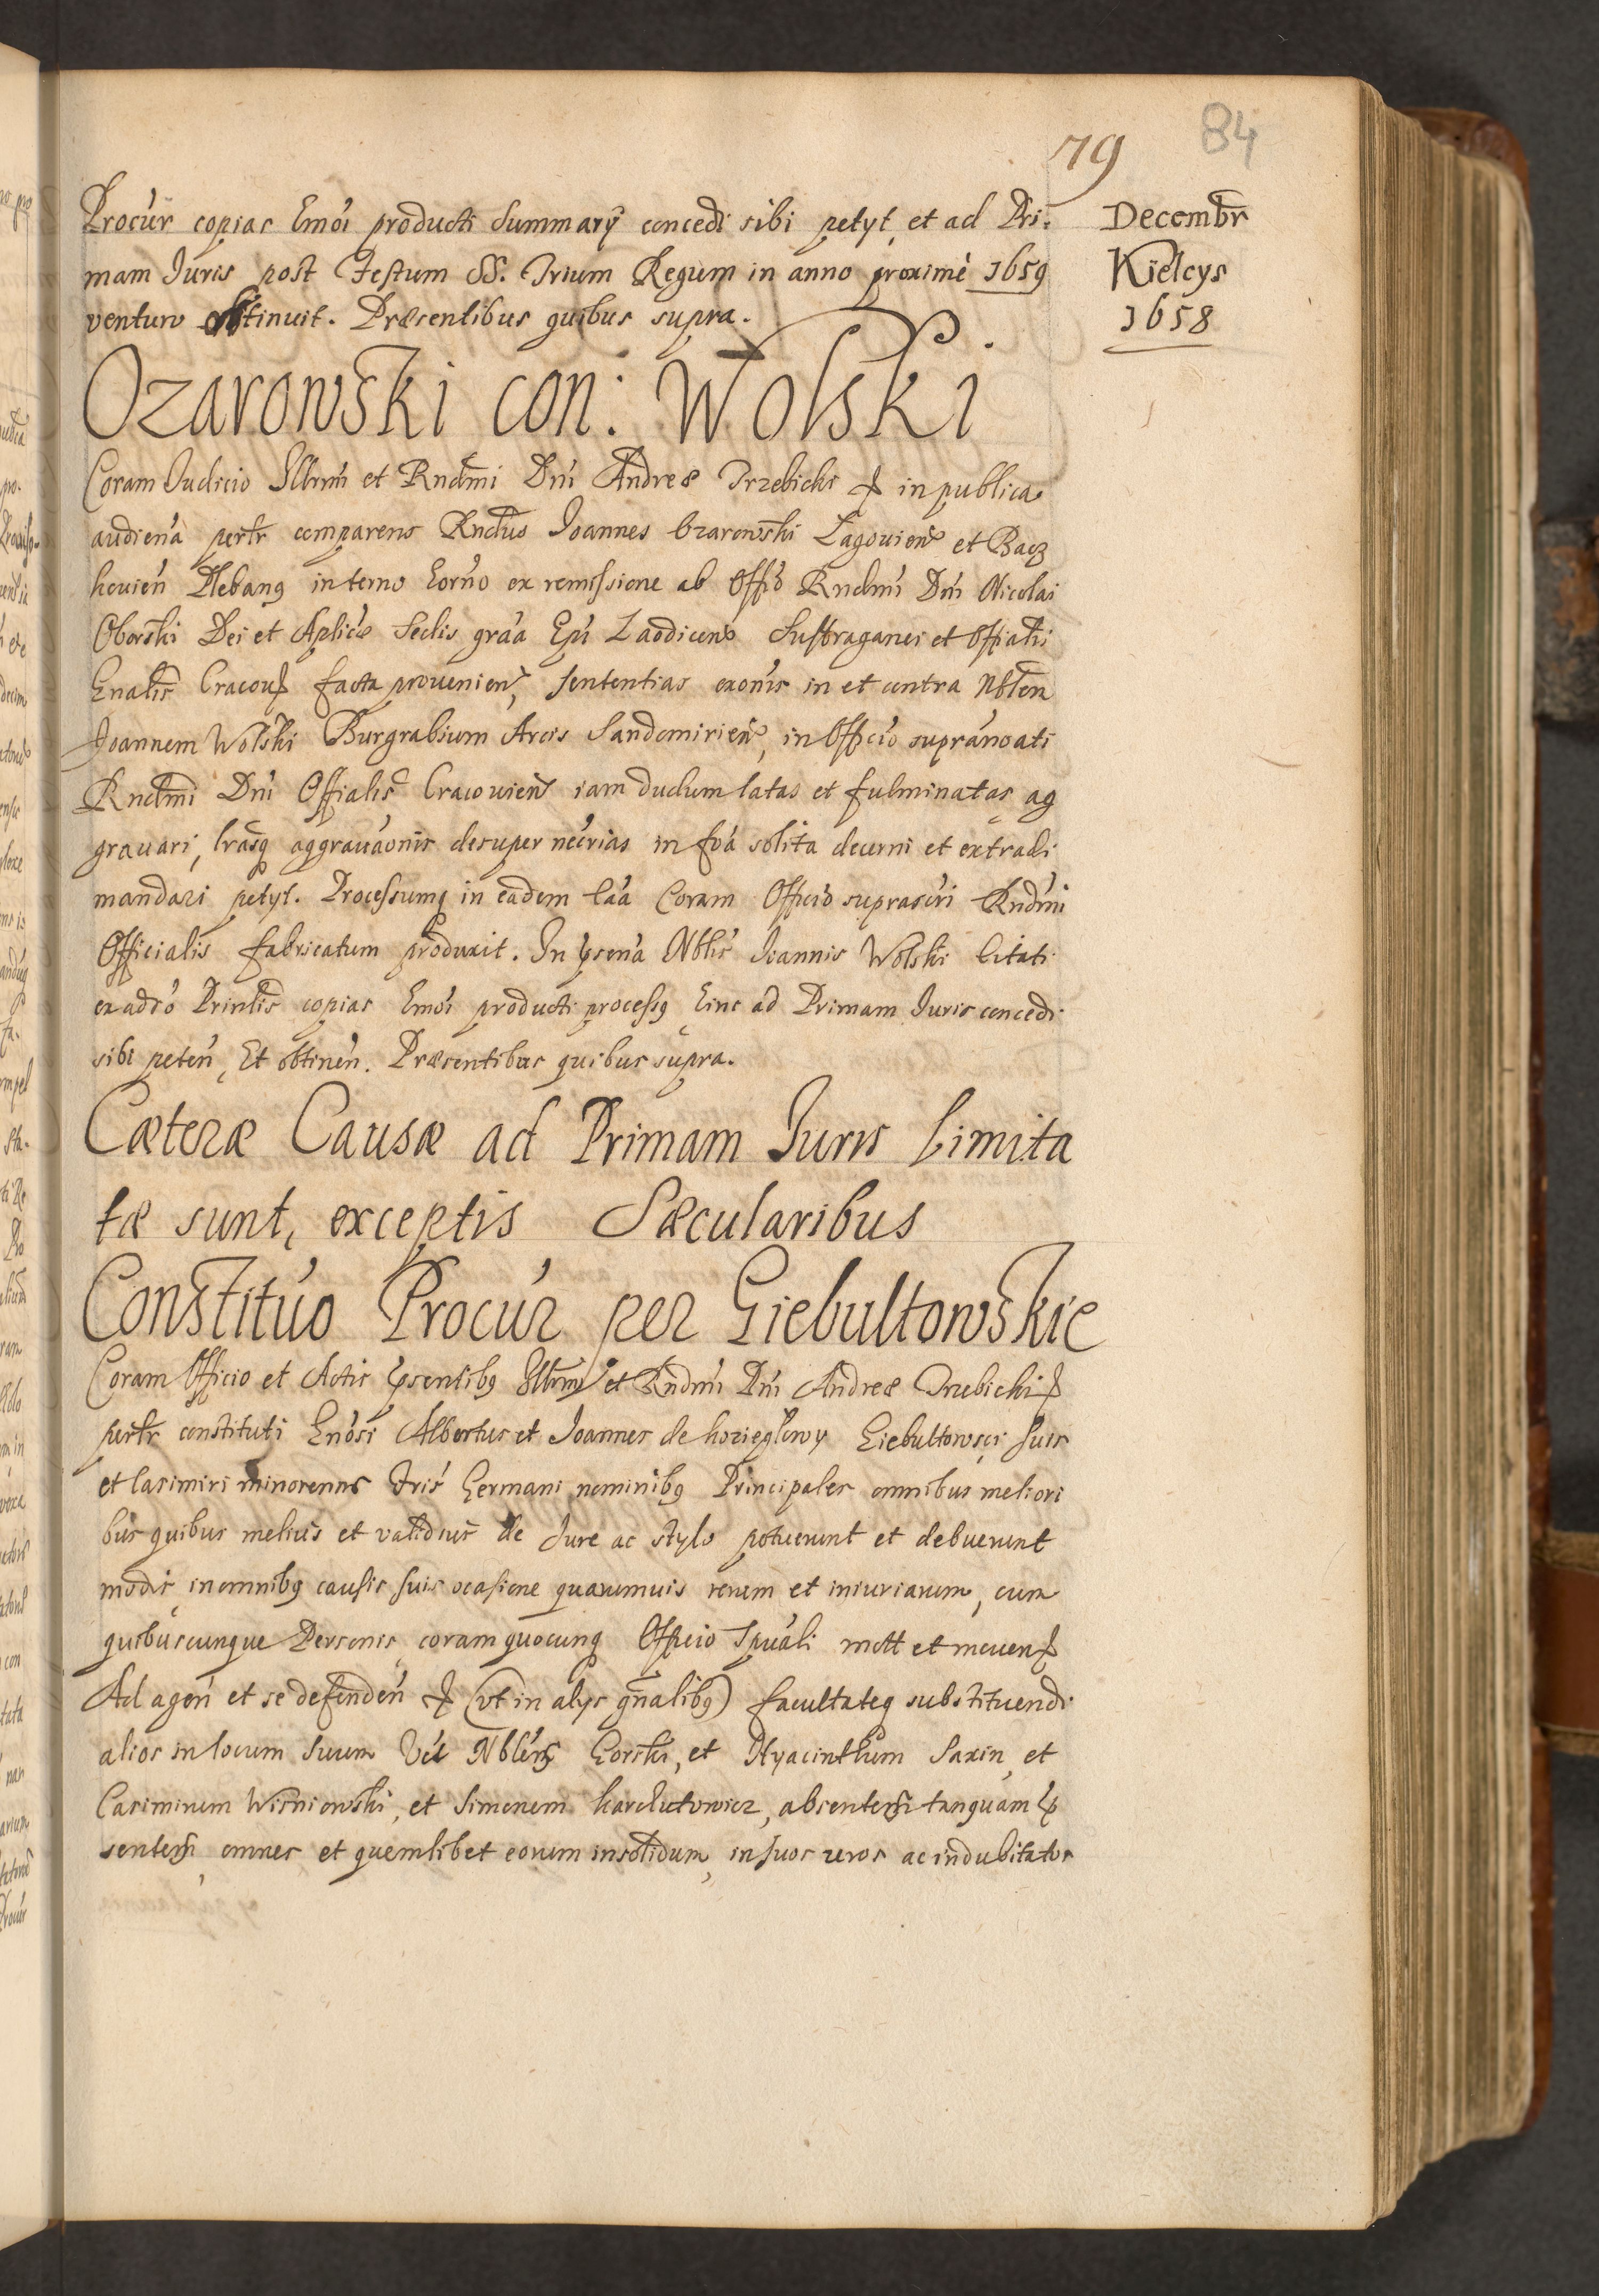 79
84
Decembr
Kielcys
1658
Procur copias Emoi producti Summarÿ concedi sibi petyt, et ad Pri:
mam Juris post Festum SS. Trium Regum in anno proximè 1659
venturo obtinuit. Præsentibus quibus supra.
Ozarowski con: Wolski.
Coram Judicio Illmi et Rndmi Dni Andreæ Trzebicki & in publica
audiena perlr comparens Rndus Joannes Ozarowski Lagouien et Bacz
kouien Plebanq in termo hor̃no ex remissione ab Offio Rndmi Dni Nicolai
Oborski Dei et Aplicæ Sedis gr̃a Epi Laodicen Suffraganei et Offialis
Gnalis Cracou factæ prouenien, sententias exõnis in et contra Nblem
Joannem Wolski Burgrabium Arcis Sandomirien, in Officio supranoati
Rndmi Dni Offialis Cracouien iam dudum latas et fulminatas ag
grauari, lrasq aggrauãonis desuper necrias in foã solita decerni et extradi
mandari petyt. Processumq in eadem cãa Coram Officio suprascri Rndmi
Officialis fabricatum produxit. In psena Nblis Joannis Wolski Citati
ex adõo Prinlis copias Emoi producti processq hinc ad Primam Juris concedi
sibi peten, Et obtinen. Præsentibus quibus supra.
Cæteræ Causæ ad Primam Juris Limita
tæ sunt, exceptis Sæcularibus
Constituo Procur per Giebultowskie
Coram Officio et Actis psentibq Illmi et Rndmi Dni Andreæ Trzebicki &
perlr constituti Gnosi Albertus et Joannes de Koziegłowy Giebultowscy suis
et Casimiri minorennis Fris Germani nominibq Principales omnibus meliori
bus quibus melius et validius de Jure ac stylo potuerunt et debuerunt
modis, in omnibq causis suis ocasione quarumuis rerum et iniuriarum, cum
quibuscunque Personis, coram quocunq Officio Spuali mott et mouen &
Ad agen et se defenden & (vt in alys gnalibq) facultateq substituendi
alios in locum suum Vel Nblem Gorski, et Hyacinthum Saxin, et
Casimirum Wisniowski, et Simonem Karchutowicz, absentes tanquam p
sentes, omnes et quemlibet eorum insolidum, in suos veros ac indubitatos